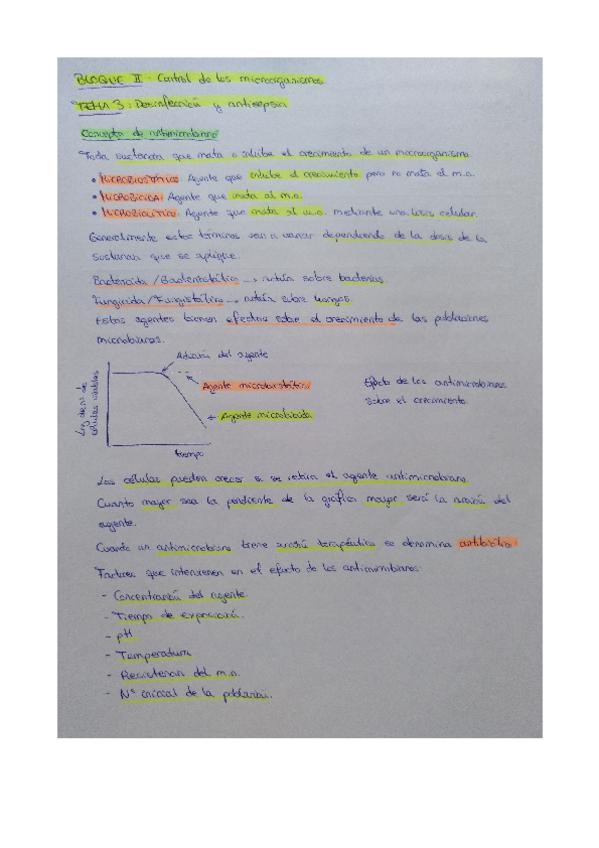 BLOQUE II: Control de los microorganismos
TEMA 3: Desinfección y antisepsia
Concepto de antimicrobiano
Toda sustancia que mata o inhibe el crecimiento de un microorganismo.
• MICROBIOSTÁTICO: Agente que inhibe el crecimiento pero no mata al m.o.
• MICROBICIDA: Agente que mata al m.o.
• MICROBIOLÍTICO: Agente que mata al m.o. mediante una lisis celular.
Generalmente estos términos van a variar dependiendo de la dosis de la
sustancia que se aplique.
Bactericida / Bacteriostático → actúa sobre bacterias.
Fungicida / Fungistático → actúa sobre hongos.
Estos agentes tienen efectos sobre el crecimiento de las poblaciones
microbianas.
Adición del agente
Agente microbiostático
Agente microbicida
Log de nº de
células viables
tiempo
Efecto de los antimicrobianos
sobre el crecimiento
Las células pueden crecer si se retira el agente antimicrobiano.
Cuanto mayor sea la pendiente de la gráfica mayor será la acción del
agente.
Cuando un antimicrobiano tiene acción terapéutica se denomina antibiótico.
Factores que intervienen en el efecto de los antimicrobianos:
- Concentración del agente.
- Tiempo de exposición.
- pH
- Temperatura
- Resistencia del m.o.
- Nº inicial de la población.